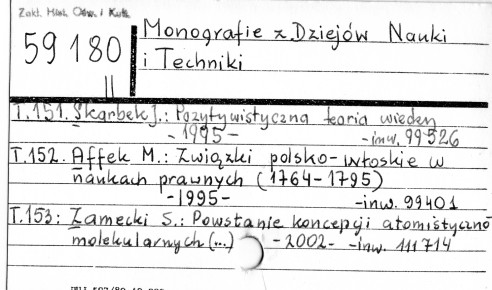 Zakł. Hist. Ośw. i Kult.
59180
II
Monografie z Dziejów Nauki
i Techniki
T.151. Skarbek J.: Pozytywistyczna teoria wiedzy
-1995- -inw. 99526
T.152. Affek M.: Związki polsko-włoskie w
naukach prawnych (1764-1795)
-1995- -inw. 99401
T.153: Zamecki S.: Powstanie koncepcji atomistyczno
molekularnych (...) -2002- -inw. 111714